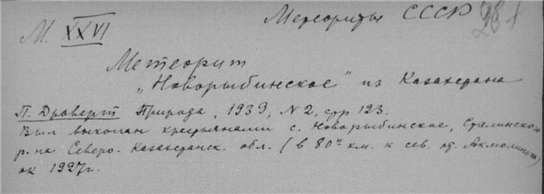 М. XXVI
Метеориты СССР
281
Метеорит
„Новорыбинское" из Казахстана
П. Драверт Природа, 1939, N 2, стр 123.
Был выкопан крестьянами с. Новорыбинское, Сталинского
р-на Северо-Казахстанск. обл. (в 80ти км. к сев. от Акмолинска)
ок 1927г.